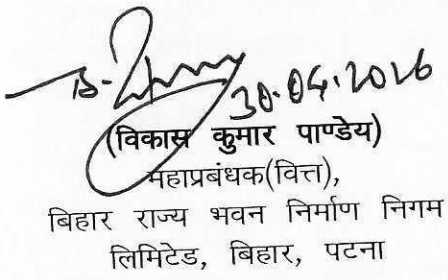 30.04.2026
(विकास कुमार पाण्डेय)
महाप्रबंधक(वित्त),
बिहार राज्य भवन निर्माण निगम
लिमिटेड, बिहार, पटना